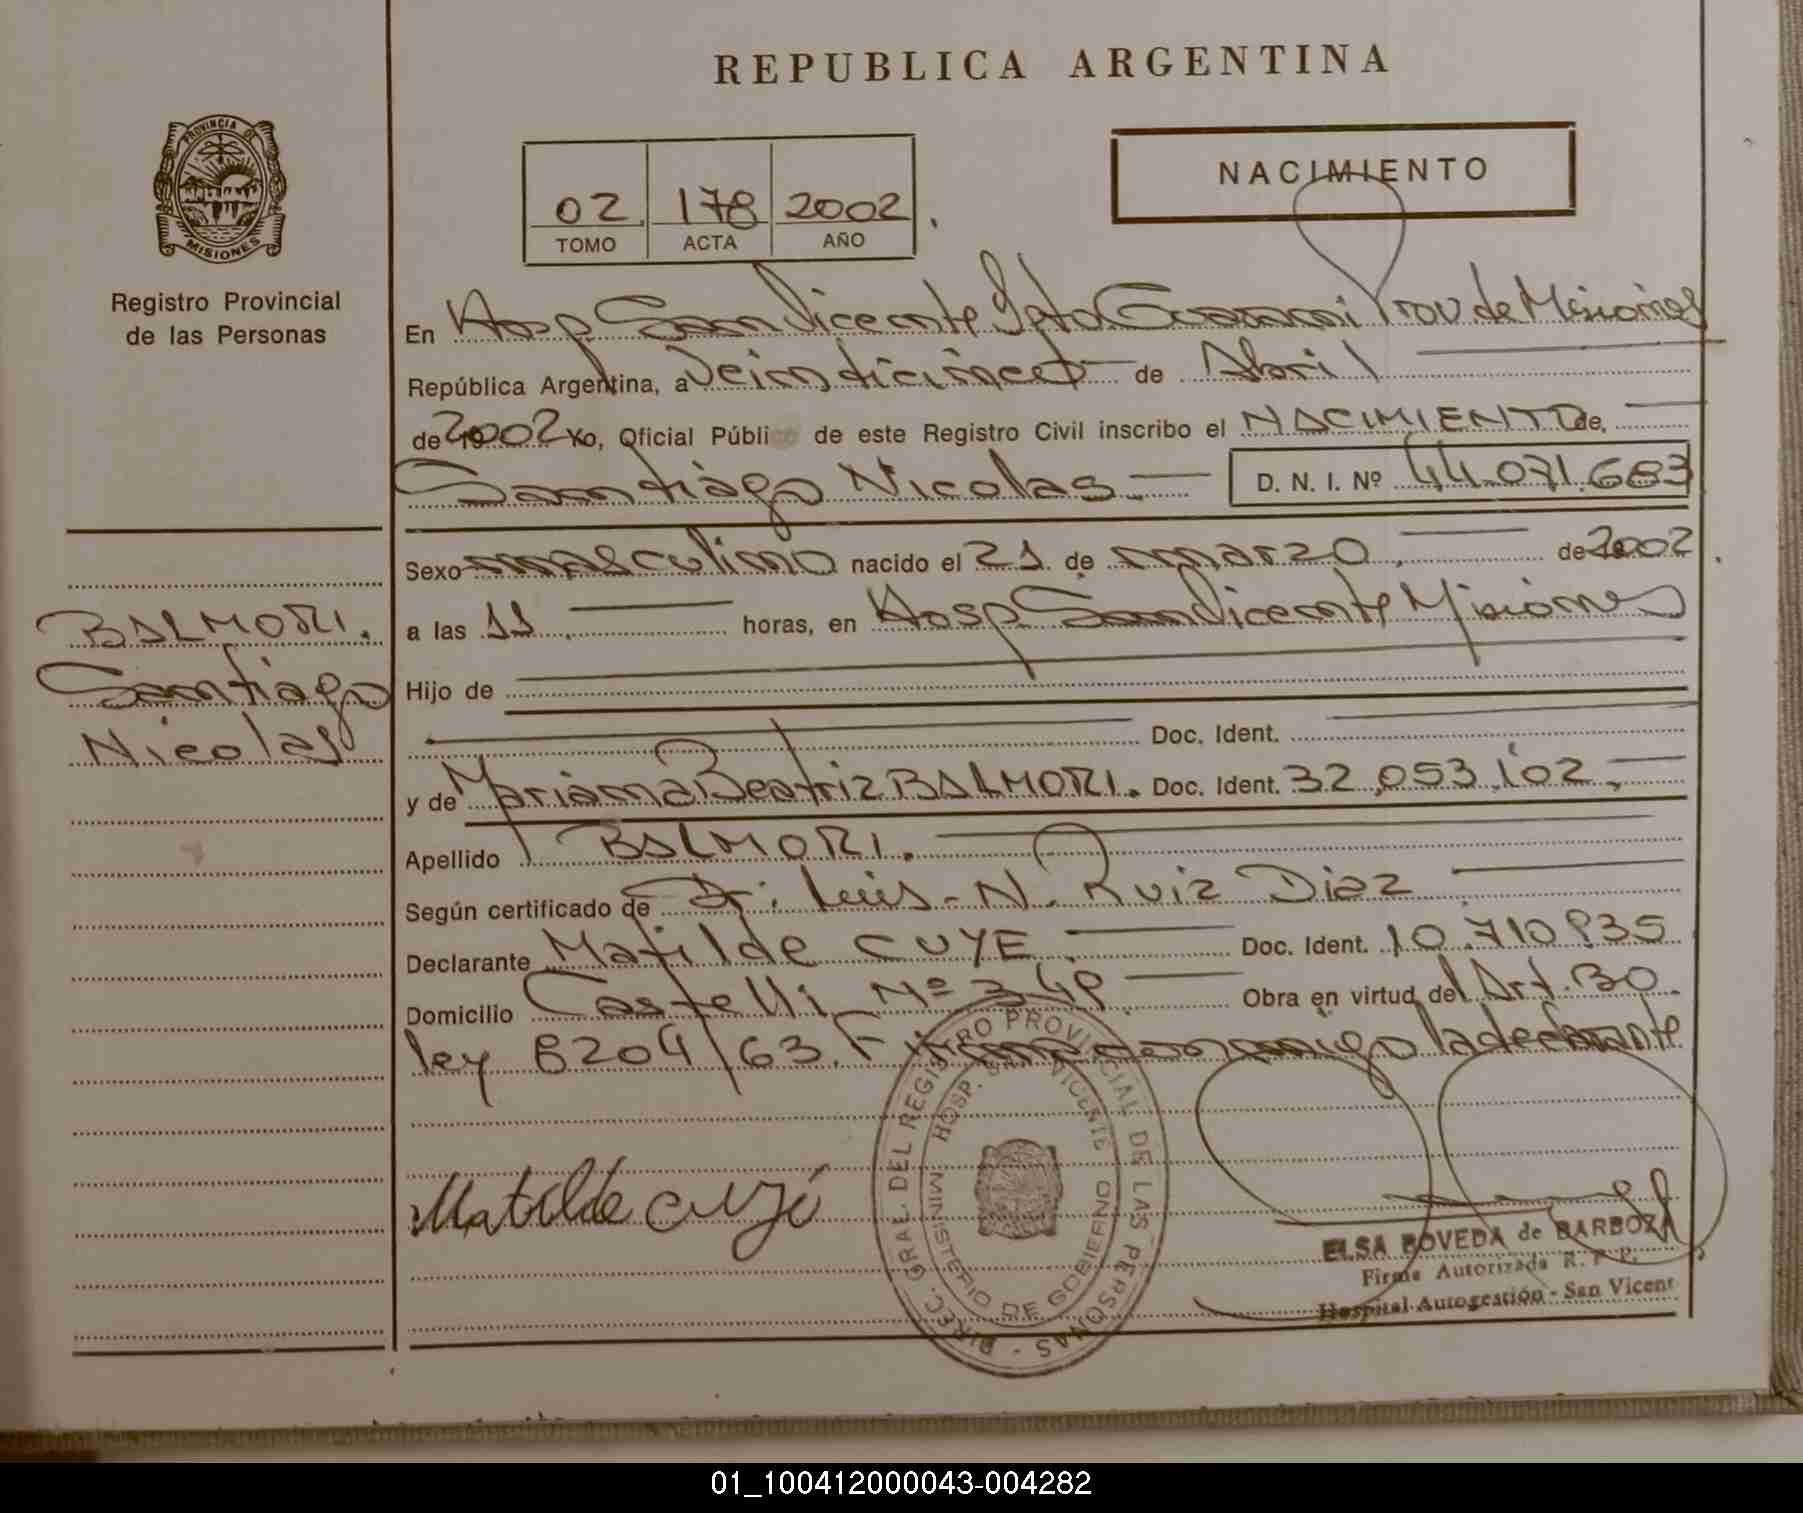 REPUBLICA ARGENTINA
PROVINCIA DE
MISIONES
Registro Provincial
de las Personas
02 178 2002
TOMO ACTA AÑO
NACIMIENTO
En Hosp San Vicente Dpto Guarani Prov de Misiones
República Argentina, a Veinticinco de Abril
de 2002 Yo, Oficial Públi de este Registro Civil inscribo el NACIMIENTO de,
Santiago Nicolas D. N. I. Nº 44.071.683
Sexo masculino nacido el 21 de marzo de 2002
a las 11 horas, en Hosp San Vicente Misiones
Hijo de
Doc. Ident.
y de Mariana Beatriz BALMORI. Doc. Ident. 32.053.102
Apellido BALMORI.
Según certificado de Dr. Luis N. Ruiz Diaz
Declarante Matilde CUYE Doc. Ident. 10.710.835
Domicilio Castelli Nº 348 Obra en virtud del Art. 30
ley 8204/63. Firma conmigo la declarante
BALMORI.
Santiago
Nicolas
Matilde cuyé
DIREC. GRAL. DEL REGISTRO PROVINCIAL DE LAS PERSONAS -
HOSP. SAN VICENTE
MINISTERIO DE GOBIERNO
ELSA BOVEDA de BARBOZA
Firma Autorizada R. P. P.
Hospital Autogestión - San Vicent
01_100412000043-004282